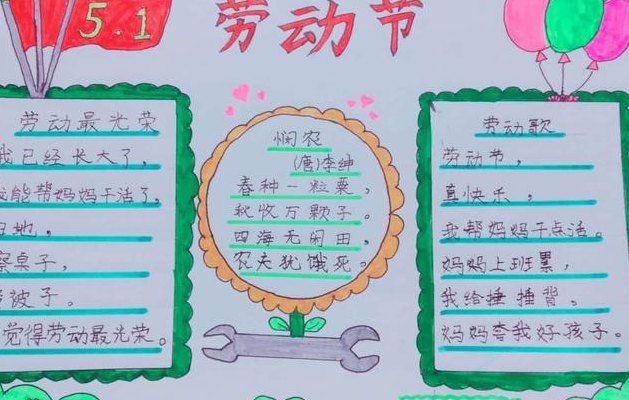 5.1
劳动节
劳动最光荣
我已经长大了，
能帮妈妈干活了，
地，
擦桌子，
被子。
觉得劳动最光荣。
悯农
(唐)李绅
春种一粒粟，
秋收万颗子。
四海无闲田，
农夫犹饿死。
劳动歌
劳动节，
真快乐，
我帮妈妈干点活。
妈妈上班累，
我给捶捶背。
妈妈夸我好孩子。